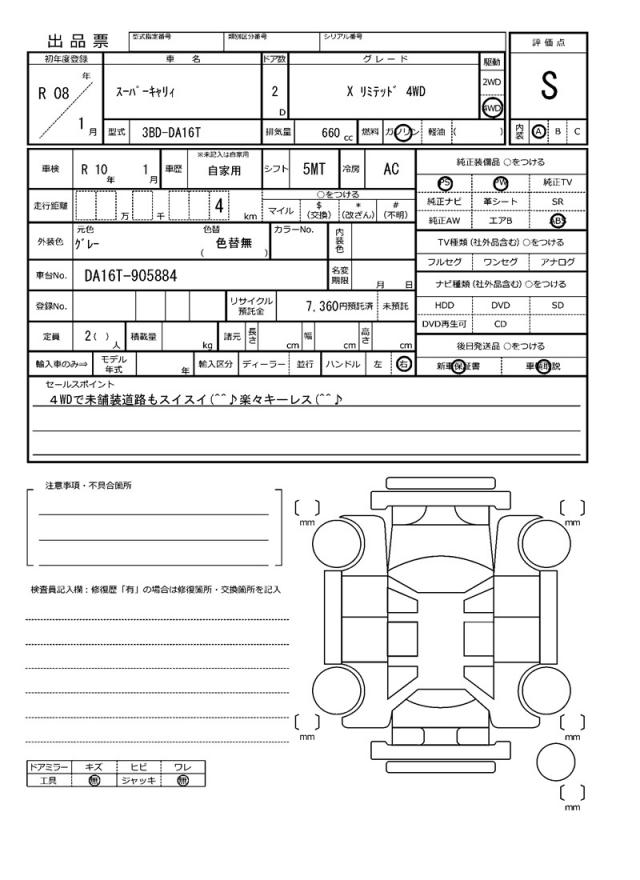 出品票
型式指定番号 類別区分番号 シリアル番号
評価点
初年度登録 車名 ドア数 グレード 駆動
R 08 年 1 月
スーパーキャリィ
2 D
X リミテッド 4WD
2WD
4WD
S
型式 3BD-DA16T 排気量 660 cc 燃料 ガソリン 軽油 ( )
内装 A B C
車検 R 10 年 1 月 車歴 ※未記入は自家用 自家用 シフト 5MT 冷房 AC
純正装備品 ○をつける
PS PW 純正TV
純正ナビ 革シート SR
純正AW エアB ABS
走行距離 万 千 4 km
○をつける
マイル $ (交換) * (改ざん) # (不明)
外装色 元色 グレー 色替 色替無 ( ) カラーNo. 内装色
TV種類 (社外品含む) ○をつける
フルセグ ワンセグ アナログ
車台No. DA16T-905884 名変期限 月 日
ナビ種類 (社外品含む) ○をつける
HDD DVD SD
DVD再生可 CD
登録No. リサイクル預託金 7,360円預託済 未預託
定員 2( ) 人 積載量 kg 諸元 長さ cm 幅 cm 高さ cm
後日発送品 ○をつける
新車保証書 車輌取説
輸入車のみ⇒ モデル年式 年 輸入区分 ディーラー 並行 ハンドル 左 右
セールスポイント
4WDで未舗装道路もスイスイ(^^♪楽々キーレス(^^♪
注意事項・不具合箇所
mm
mm
検査員記入欄：修復歴「有」の場合は修復箇所・交換箇所を記入
mm
mm
ドアミラー キズ ヒビ ワレ
工具 無 ジャッキ 無
mm